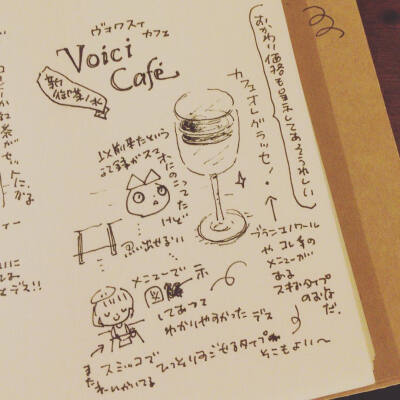 ヴォワスィ
カフェ
Voici
Café
新御茶ノ水
おかわり価格も呈示してあるうれしい
カフェオレグラッセ！
以前来たという
記録がスマ
ホにのこってた
けど
思い出せない
ブランエノワール
や コレ系の
メニューが
ある
スキなタイプ
のお店
だ。
メニューで示
図解
してあって
わかりやすかったデス
スミッコで
ひっそりすごせるタイプ
そこもよい〜
また
茶が
セッ
トに
デス!!